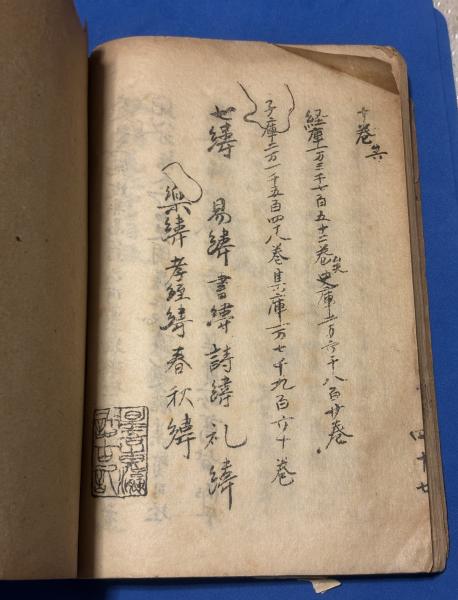 十巻
経庫一万三千七百五十二巻史庫二万六千八百廿巻
子庫二万一千五百四十八巻集庫一万七千九百六十巻
七緯 易緯書緯詩緯礼緯
樂緯孝経緯春秋緯
四十七